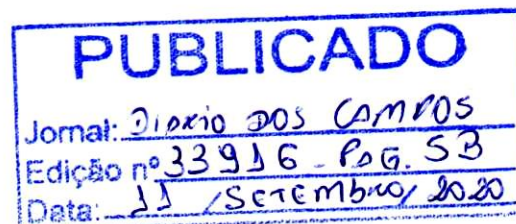 PUBLICADO
Jornal: DIARIO DOS CAMPOS
Edição nº 33916 - PAG. 5B
Data: 11 / SETEMBRO / 2020